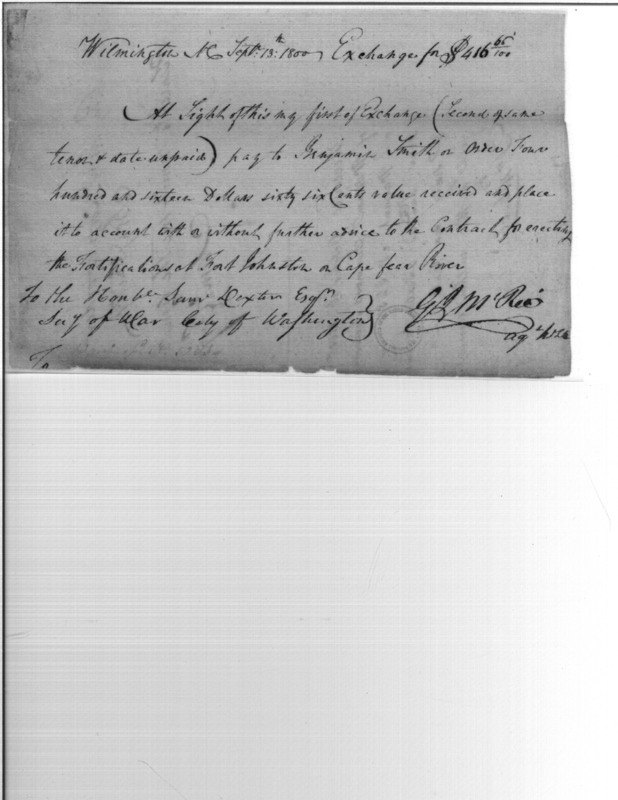 Wilmington NC Septr. 13th. 1800 Exchange for $416 66/100
At Sight of this my first of Exchange (Second of same
tenor & date unpaid) pay to Benjamin Smith or Order Four
hundred and sixteen Dollars sixty six Cents value received and place
it to account with or without further advice to the Contract for erecting
the Fortifications at Fort Johnston on Cape fear River
To the Honble. Saml Dexter Esqr.
Secy of War City of Washington
G J McRee
To